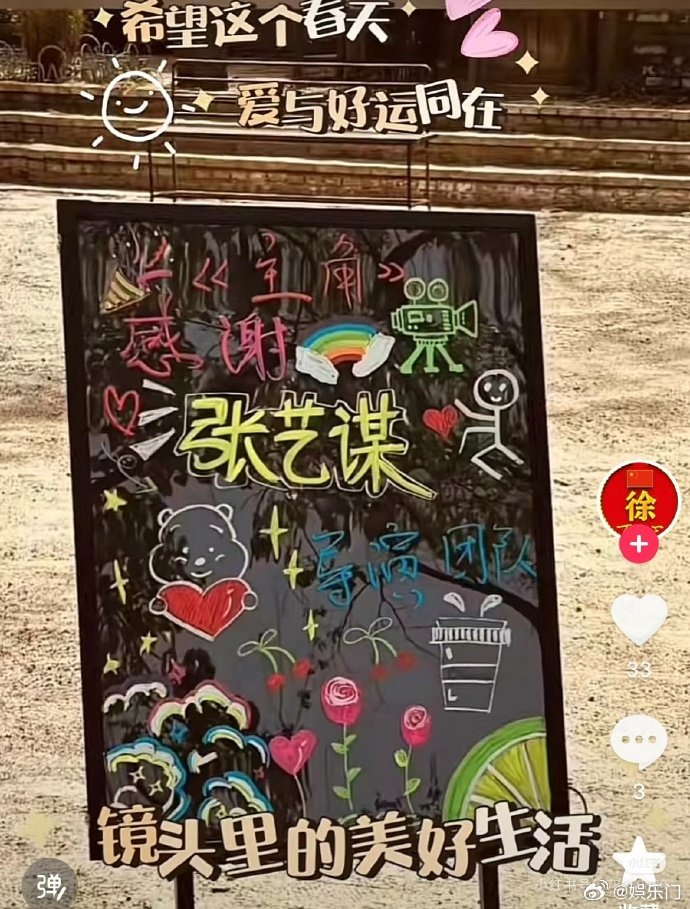 希望这个春天
爱与好运同在
《主角》
感谢
张艺谋
导演团队
镜头里的美好生活
徐
33
3
弹
@娱乐门